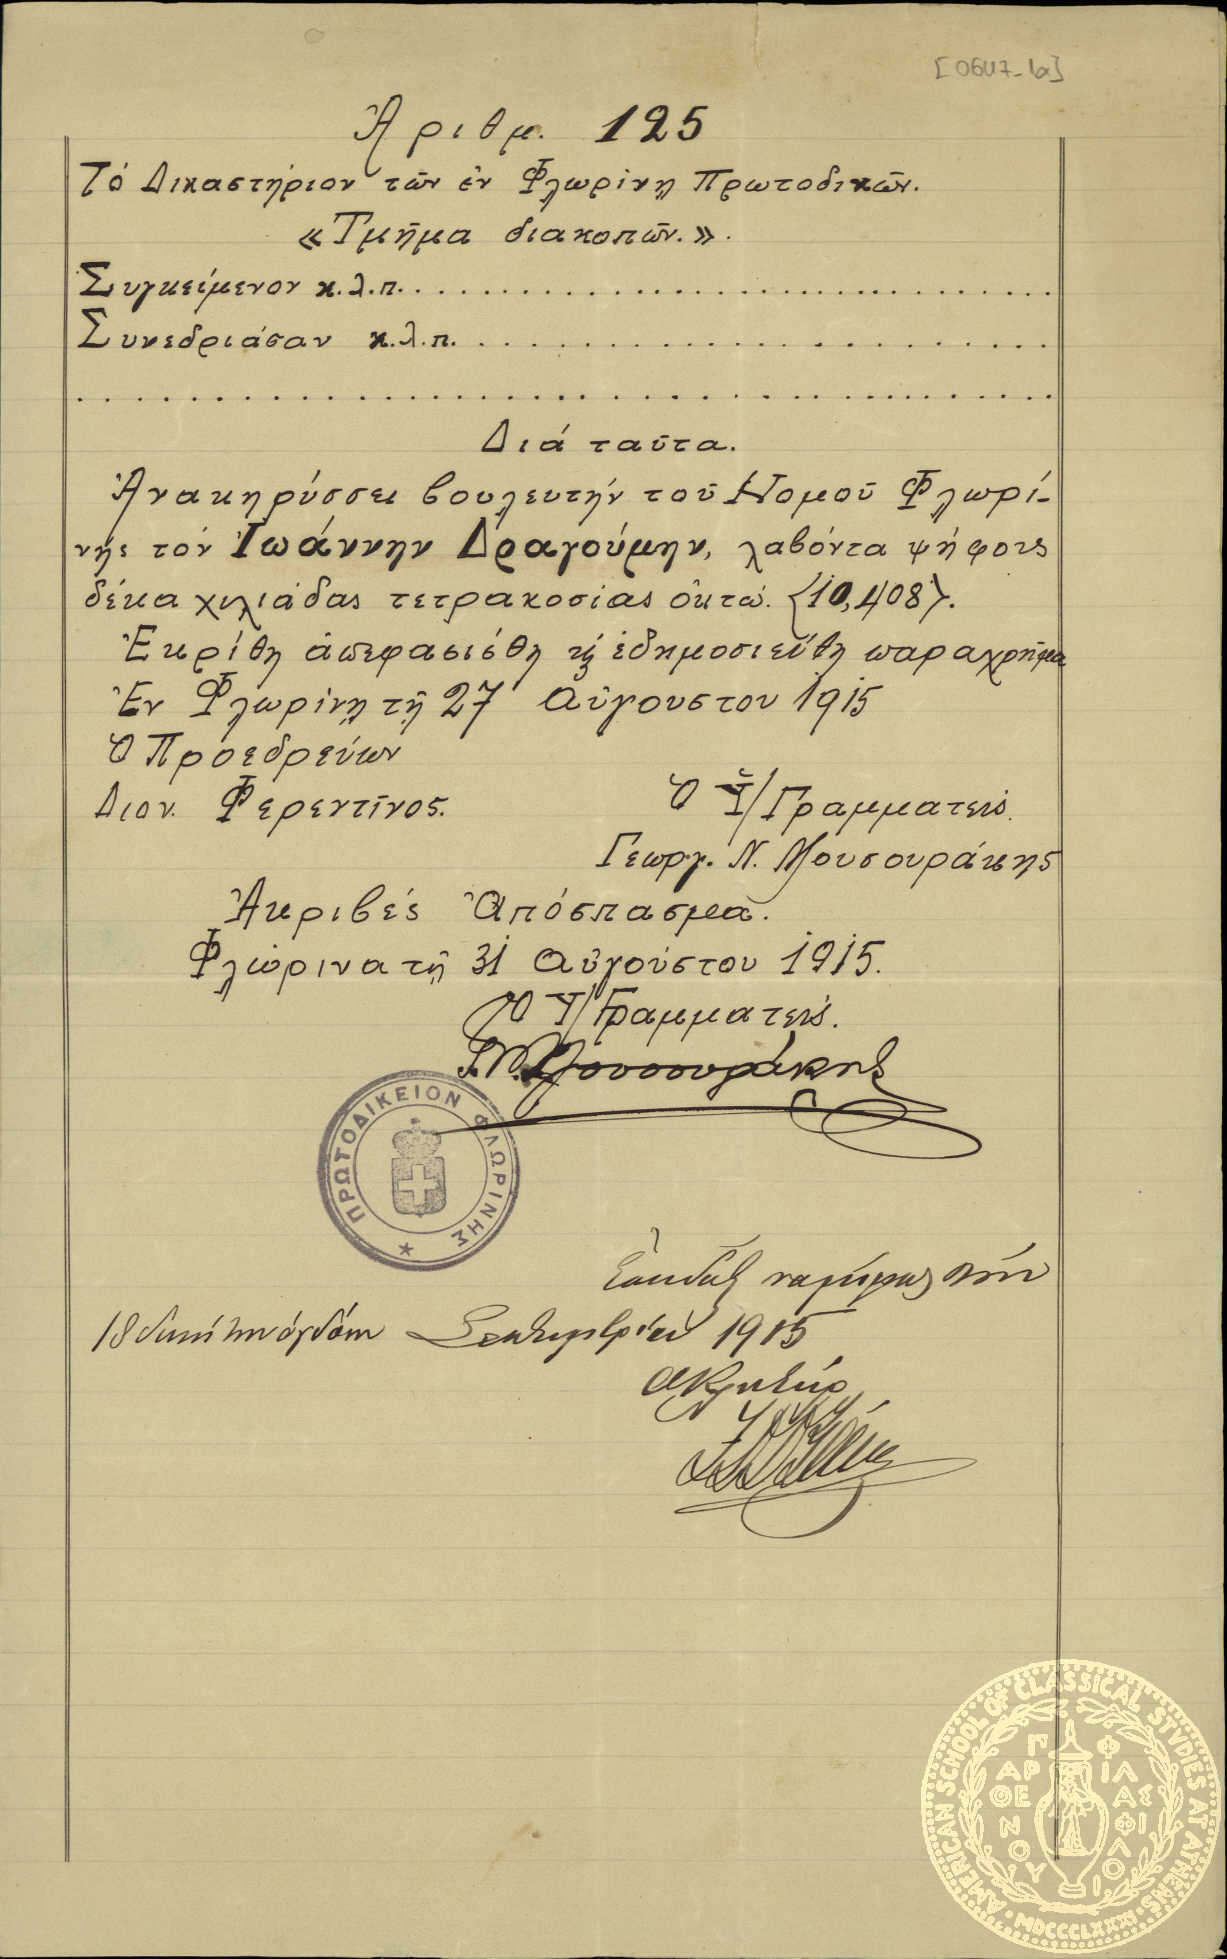 [0647-1α]
Ἀριθμ. 125
Τό Δικαστήριον τῶν ἐν Φλωρίνῃ Πρωτοδικῶν.
«Τμῆμα διακοπῶν.».
Συγκείμενον κ.λ.π. . . . . . . . . . . . . . . . . . . . . . . . . .
Συνεδριάσαν κ.λ.π. . . . . . . . . . . . . . . . . . . . . . . .
. . . . . . . . . . . . . . . . . . . . . . . . . . . . . . . . . . .
Διά ταῦτα.
Ἀνακηρύσσει βουλευτήν τοῦ Νομοῦ Φλωρί-
νης τόν Ἰωάννην Δραγούμην, λαβόντα ψήφους
δέκα χιλιάδας τετρακοσίας ὀκτώ. (10,408).
Ἐκρίθη ἀπεφασίσθη ϗ ἐδημοσιεύθη παραχρῆμα
Ἐν Φλωρίνῃ τῇ 27 Αὐγούστου 1915
Ὁ Προεδρεύων
Διον. Φερεντῖνος.
Ὁ Ὑ/Γραμματεύς.
Γεωργ. Ν. Μουσουράκης
Ἀκριβές Ἀπόσπασμα.
Φλώρινα τῇ 31 Αὐγούστου 1915.
Ὁ Ὑ/Γραμματεύς.
Γ.Ν. Μουσουράκης
ΠΡΩΤΟΔΙΚΕΙΟΝ ΦΛΩΡΙΝΗΣ
18 δεκάτην ὀγδόην Σεπτεμβρίου 1915
AMERICAN SCHOOL OF CLASSICAL STVDIES AT ATHENS
ΠΑΡΘΕΝΟΥ ΦΙΛΑΣ ΦΙΛΟΙ
MDCCCLXXXI